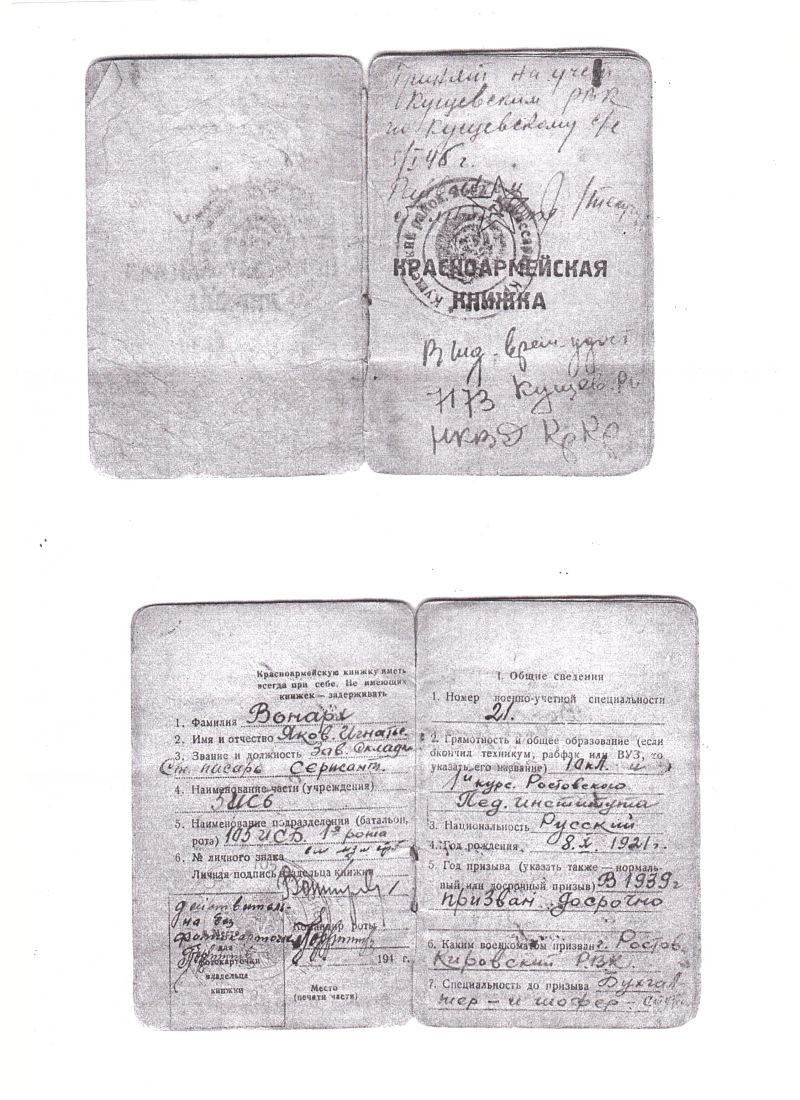 Принят на учет
Кущевским РВК
по Кущевскому с/с
5/I 46 г.
КРАСНОАРМЕЙСКАЯ
КНИЖКА
Выд. врем. удост
7173 Кущев. РО
НКВД Кр Кр
Красноармейскую книжку иметь
всегда при себе. Не имеющих
книжек — задерживать
1. Фамилия Вонарх
2. Имя и отчество Яков Игнатье
3. Звание и должность Зав. Складом
Ст. писарь Сержант
4. Наименование части (учреждения)
5ИСБ
5. Наименование подразделения (батальон,
рота) 105 ИСБ. 1я рота
6. № личного знака
Личная подпись владельца книжки
действитель-
на без
фотокарточки
для
фотокарточки
владельца
книжки
Командир роты
194 г.
Место
(печати части)
I. Общие сведения
1. Номер военно-учетной специальности
21.
2. Грамотность и общее образование (если
окончил техникум, рабфак или ВУЗ, то
указать его название) 10 кл. и
1й курс. Ростовского
Пед. института
3. Национальность Русский
4. Год рождения 8.X.1921 г.
5. Год призыва (указать также — нормаль-
ный или досрочный призыв) В 1939 г
призван досрочно
6. Каким военкоматом призван г. Ростов.
Кировский РВК.
7. Специальность до призыва Бухгал
тер - и шофер